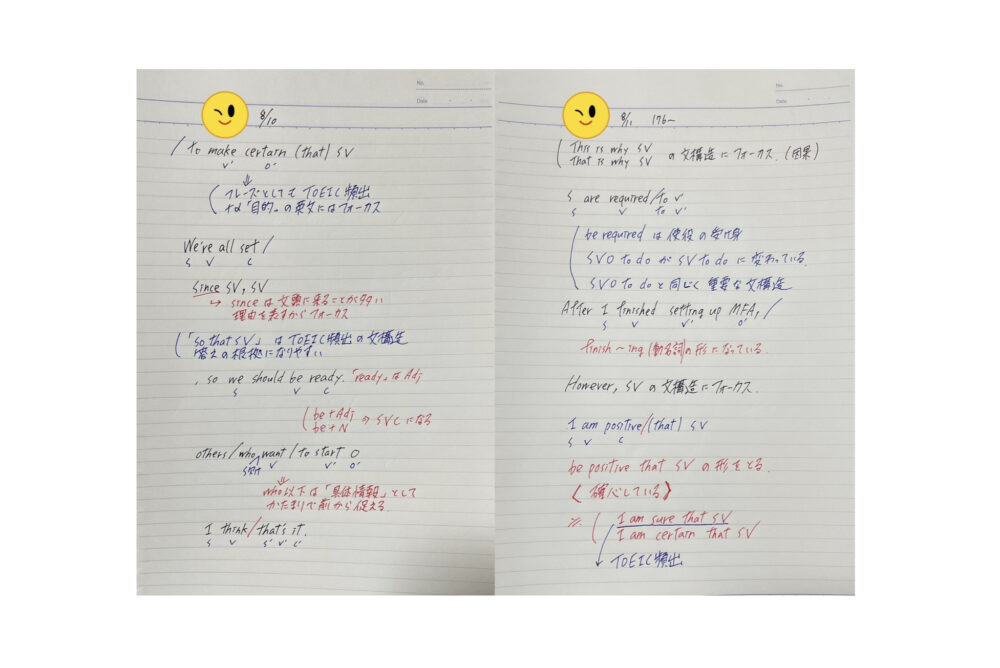 No.
Date
8/10
/ To make certain (that) SV
V' O'
フレーズとしても TOEIC頻出
「目的」の英文にはフォーカス
We're all set /
S V C
since SV, SV
→ sinceは文頭に来ることが多い
理由を表すからフォーカス
「so that SV」は TOEIC頻出の文構造
答えの根拠になりやすい
, so we should be ready. 「ready」はAdj
S V C
be+Adj
be+N のSVCになる
others / who want / to start O
V V' O'
who以下は「具体情報」として
かたまりで前から捉える.
I think / that's it.
S V S' V' C'
No.
Date
8/11 176~
This is why SV
That is why SV の文構造にフォーカス. (因果)
S are required / to V'
S V to V'
be required は使役の受け身
SVO to do が SV to do に変わっている.
SVO to do と同じく重要な文構造
After I finished setting up MFA, /
S V V' O'
finish ~ing (動名詞)の形になっている.
However, SV の文構造にフォーカス.
I am positive / (that) SV
S V C
be positive that SV の形をとる.
〈確信している〉
※ I am sure that SV
I am certain that SV
TOEIC頻出